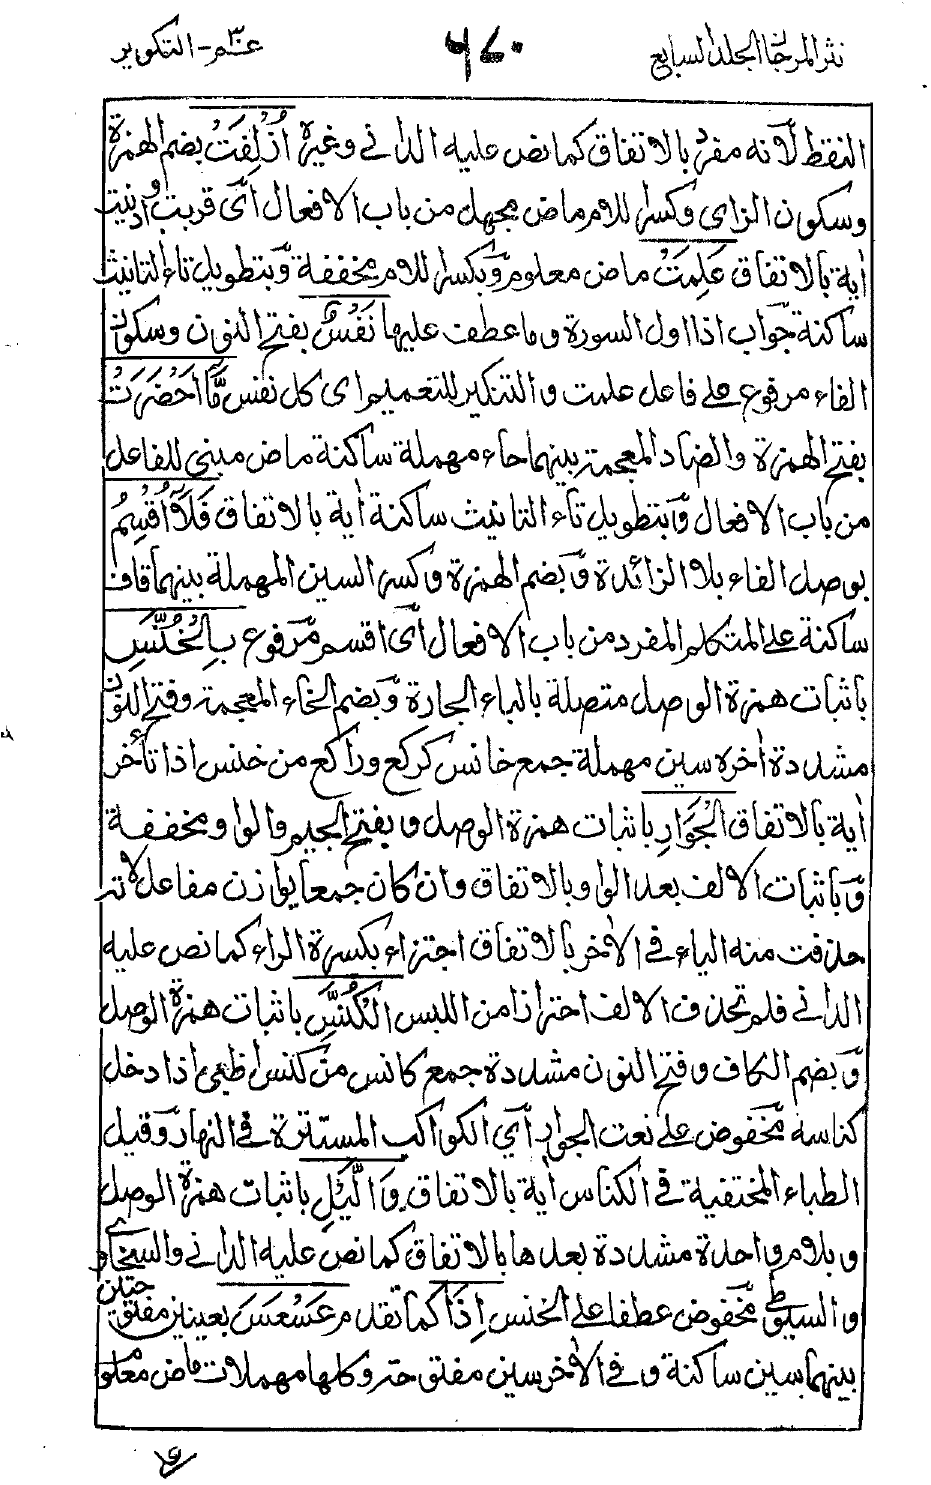 نثر المرجان الجلد السابع ٦٨٠ عمّ - التكوير
النقط لأنه مفرد بالاتفاق كما نص عليه الداني وغيره اُزْلِفَتْ بضم الهمزة
وسكون الزاى وكسر اللام ماض مجهول من باب الافعال أى قربت وادنيت
اٰية بالاتفاق عَلِمَتْ ماض معلوم وبكسر اللام مخففة وبتطويل تاء التانيث
ساكنة جواب اذا اول السورة وما عطف عليها نَفْسٌ بفتح النون وسكون
الفاء مرفوع على فاعل علمت والتنكير للتعميم اى كل نفس مَّآ اَحْضَرَتْ
بفتح الهمزة والضاد المعجمة بينهما حاء مهملة ساكنة ماض مبنى للفاعل
من باب الافعال وبتطويل تاء التانيث ساكنة اٰية بالاتفاق فَلَآ اُقْسِمُ
بوصل الفاء بلا الزائدة وبضم الهمزة وكسر السين المهملة بينهما قاف
ساكنة على المتكلم المفرد من باب الافعال أى اقسم مرفوع بِالْخُنَّسِ
باثبات همزة الوصل متصلة بالباء الجارة وبضم الخاء المعجمة وفتح النون
مشددة اٰخره سين مهملة جمع خانس كركع وراكع من خنس اذا تأخر
اٰية بالاتفاق الْجَوَارِ باثبات همزة الوصل وبفتح الجيم والواو مخففة
وباثبات الالف بعد الواو بالاتفاق وان كان جمعا يوازن مفاعل لانه
حذفت منه الياء في الاٰخر بالاتفاق اجتزاء بكسرة الراء كما نص عليه
الداني فلم تحذف الالف احترازا من اللبس الْكُنَّسِ باثبات همزة الوصل
وبضم الكاف وفتح النون مشددة جمع كانس من كنس الظبي اذا دخل
كناسه مخفوض على نعت الجوار أى الكواكب المستترة في النهار وقيل
الظباء المختفية في الكناس اٰية بالاتفاق وَالَّيْلِ باثبات همزة الوصل
وبلام واحدة مشددة بعدها بالاتفاق كما نص عليه الداني والسخاوي
والسيوطي مخفوض عطفا على الخنس اِذَا كما تقدم عَسْعَسَ بعينين مفتوحتين
بينهما سين ساكنة وفي الاٰخر سين مفتوحة وكلها مهملات ماض معلوم